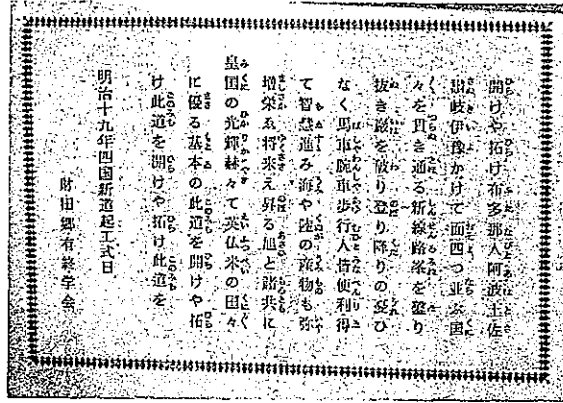 開けや拓け布多那人阿波土佐
讃岐伊豫かけて面四つ並ぶ国
々を貫き通る新線路峯を鑿り
抜き巌を破り登り降りの憂ひ
なく馬車腕車歩行人皆便利得
て智慧進み海や陸の産物も弥
増栄ゑ将来え昇る旭と諸共に
皇国の光輝赫々て英仏米の国々
に優る基本の此道を開けや拓
け此道を開けや拓け此道を
明治十九年四国新道起工式日
財田郷有終学会